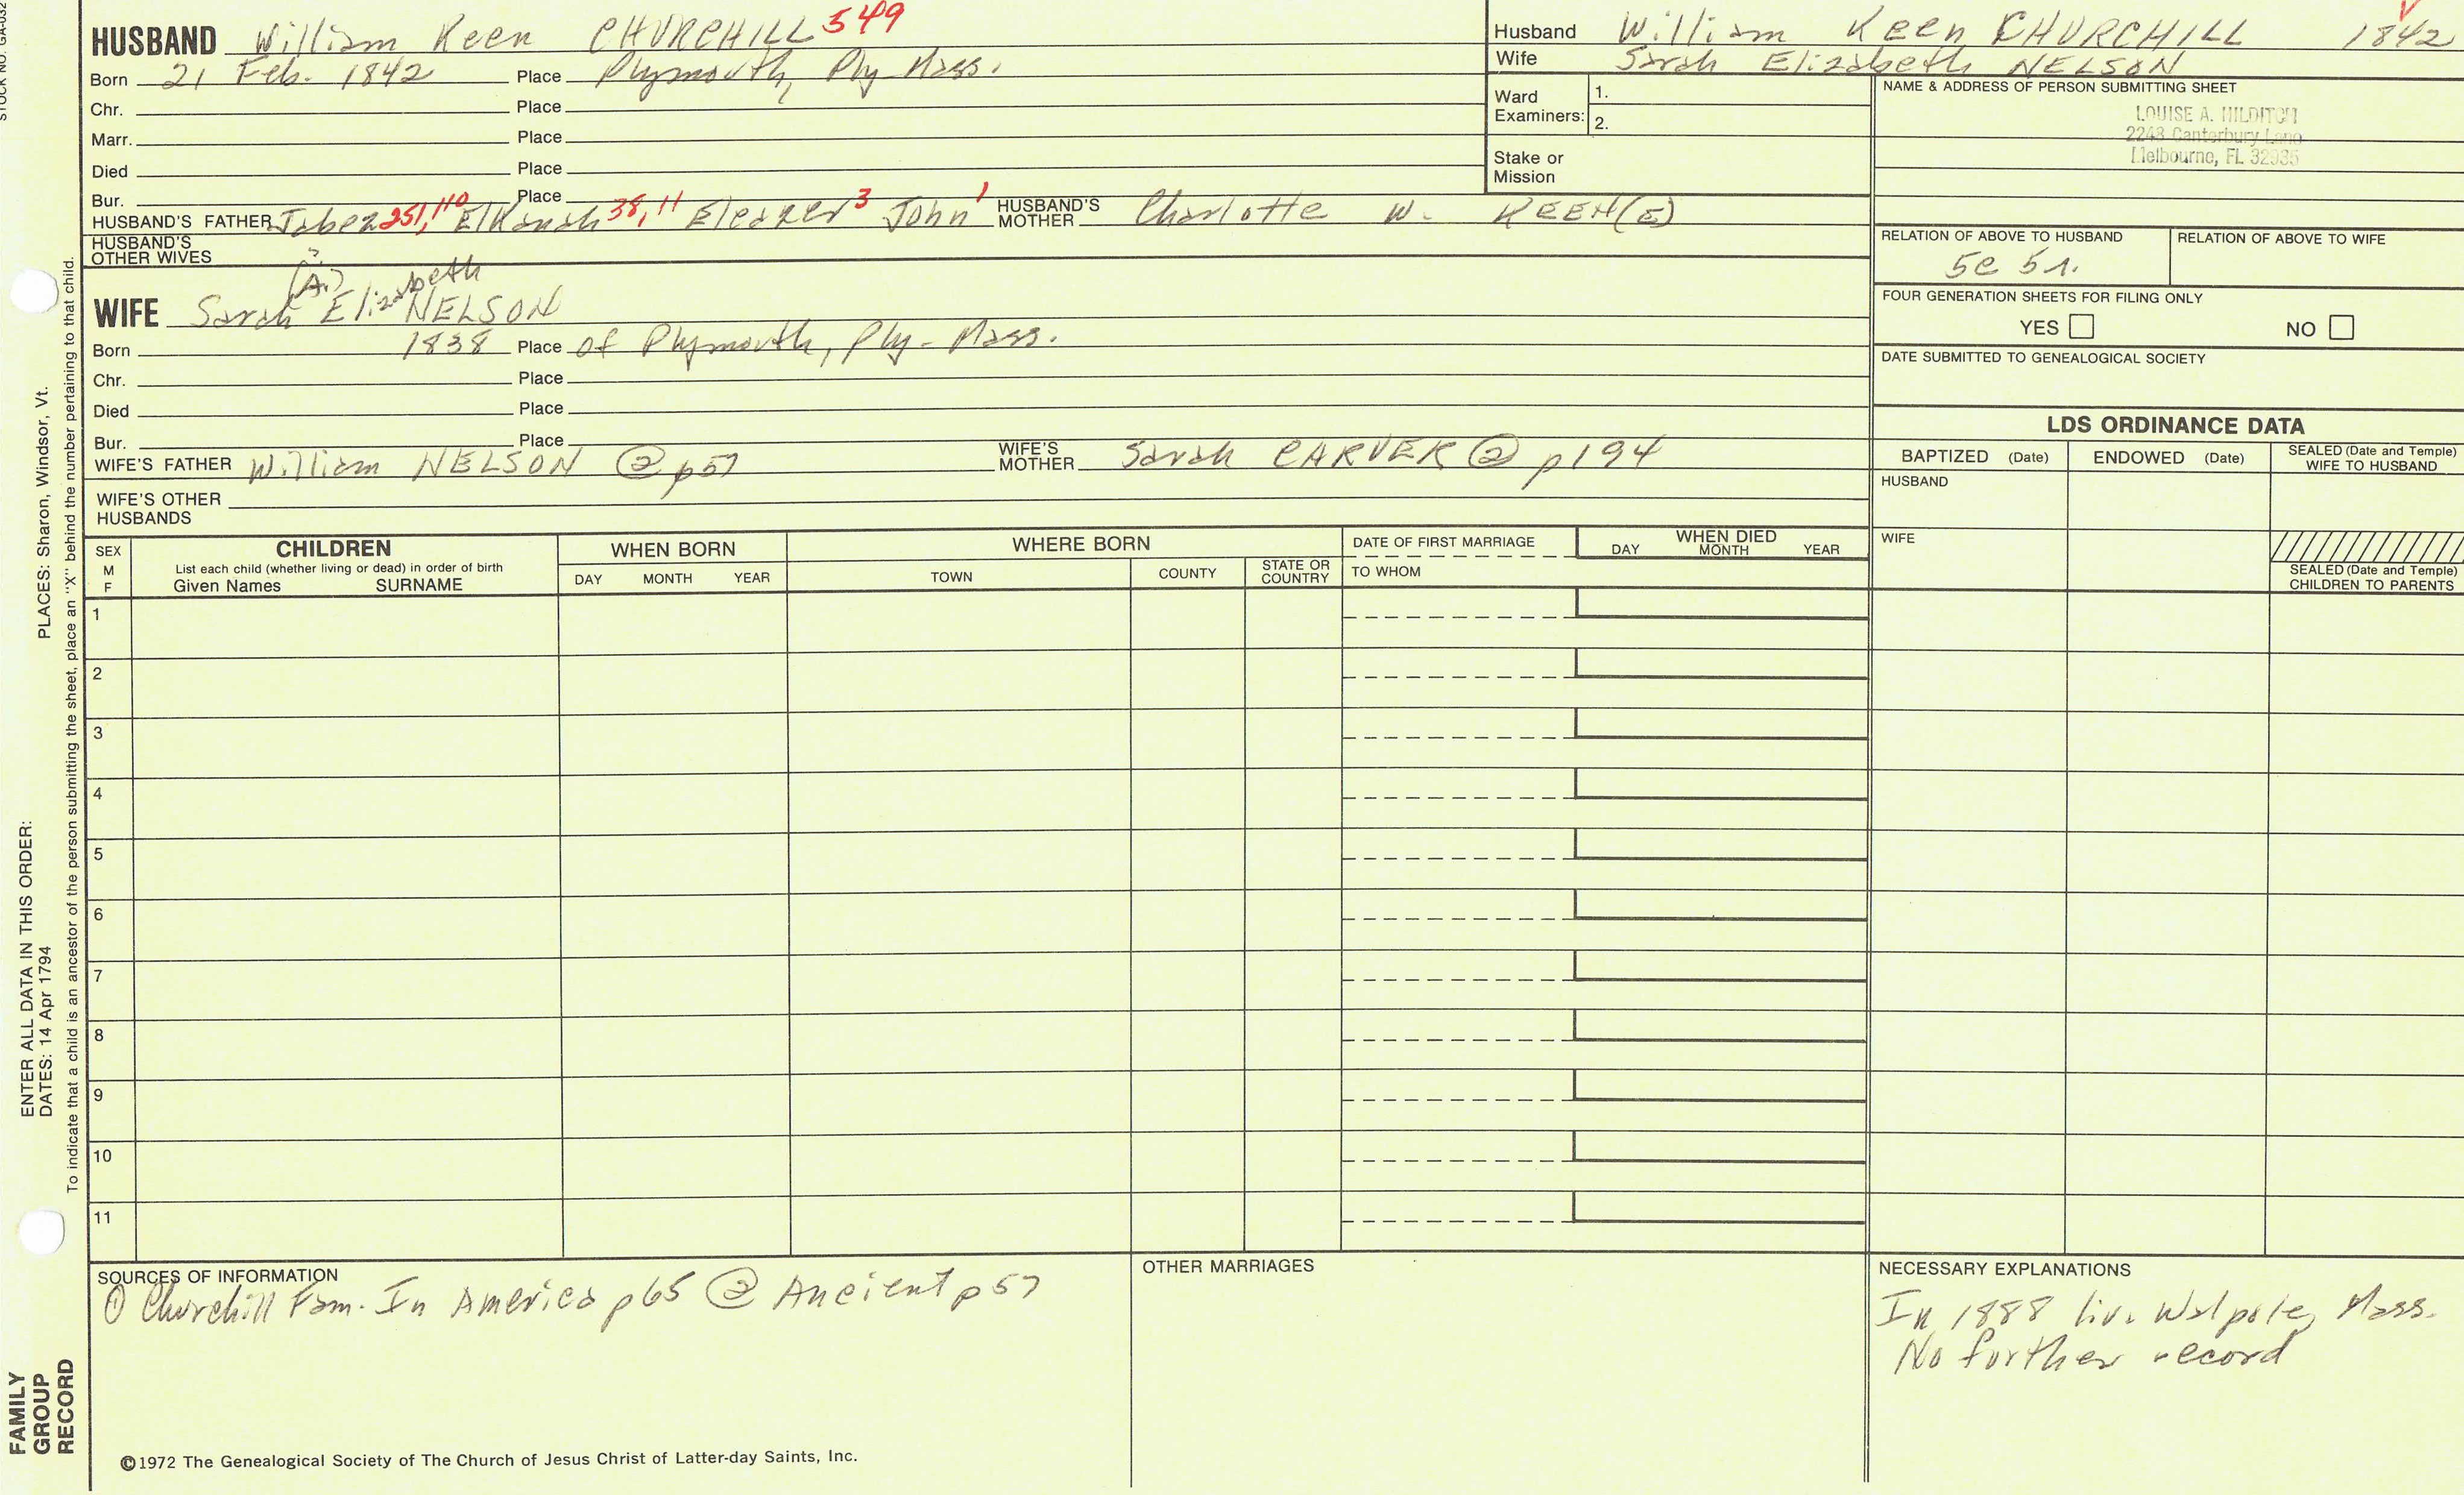 STOCK NO. GA-032
HUSBAND William Keen CHURCHILL 549
Born 21 Feb. 1842 Place Plymouth, Ply Mass.
Chr. Place
Marr. Place
Died Place
Bur. Place
HUSBAND'S FATHER Jabez 251, 110 Elkanah 38, 11 Eleazer 3 John 1 HUSBAND'S MOTHER Charlotte W. KEEN(E)
HUSBAND'S OTHER WIVES
(A.)?
WIFE Sarah Elizabeth NELSON
Born 1838 Place of Plymouth, Ply- Mass.
Chr. Place
Died Place
Bur. Place
WIFE'S FATHER William NELSON @ p57 WIFE'S MOTHER Sarah CARVER @ p194
WIFE'S OTHER HUSBANDS
Husband William Keen CHURCHILL 1842
Wife Sarah Elizabeth NELSON
Ward Examiners: 1.
2.
Stake or Mission
NAME & ADDRESS OF PERSON SUBMITTING SHEET
LOUISE A. HILDITCH
2248 Canterbury Lane
Melbourne, FL 32935
RELATION OF ABOVE TO HUSBAND RELATION OF ABOVE TO WIFE
5c 5r.
FOUR GENERATION SHEETS FOR FILING ONLY
YES NO
DATE SUBMITTED TO GENEALOGICAL SOCIETY
LDS ORDINANCE DATA
BAPTIZED (Date) ENDOWED (Date) SEALED (Date and Temple) WIFE TO HUSBAND
HUSBAND
WIFE
SEALED (Date and Temple) CHILDREN TO PARENTS
SEX M F
CHILDREN
List each child (whether living or dead) in order of birth
Given Names SURNAME
WHEN BORN
DAY MONTH YEAR
WHERE BORN
TOWN COUNTY STATE OR COUNTRY
DATE OF FIRST MARRIAGE
TO WHOM
WHEN DIED
DAY MONTH YEAR
1
2
3
4
5
6
7
8
9
10
11
SOURCES OF INFORMATION
① Churchill Fam. In America p65 @ Ancient p57
OTHER MARRIAGES
NECESSARY EXPLANATIONS
In 1888 liv. Walpole, Mass.
No further record
©1972 The Genealogical Society of The Church of Jesus Christ of Latter-day Saints, Inc.
FAMILY
GROUP
RECORD
ENTER ALL DATA IN THIS ORDER:
DATES: 14 Apr 1794 PLACES: Sharon, Windsor, Vt.
To indicate that a child is an ancestor of the person submitting the sheet, place an "X" behind the number pertaining to that child.